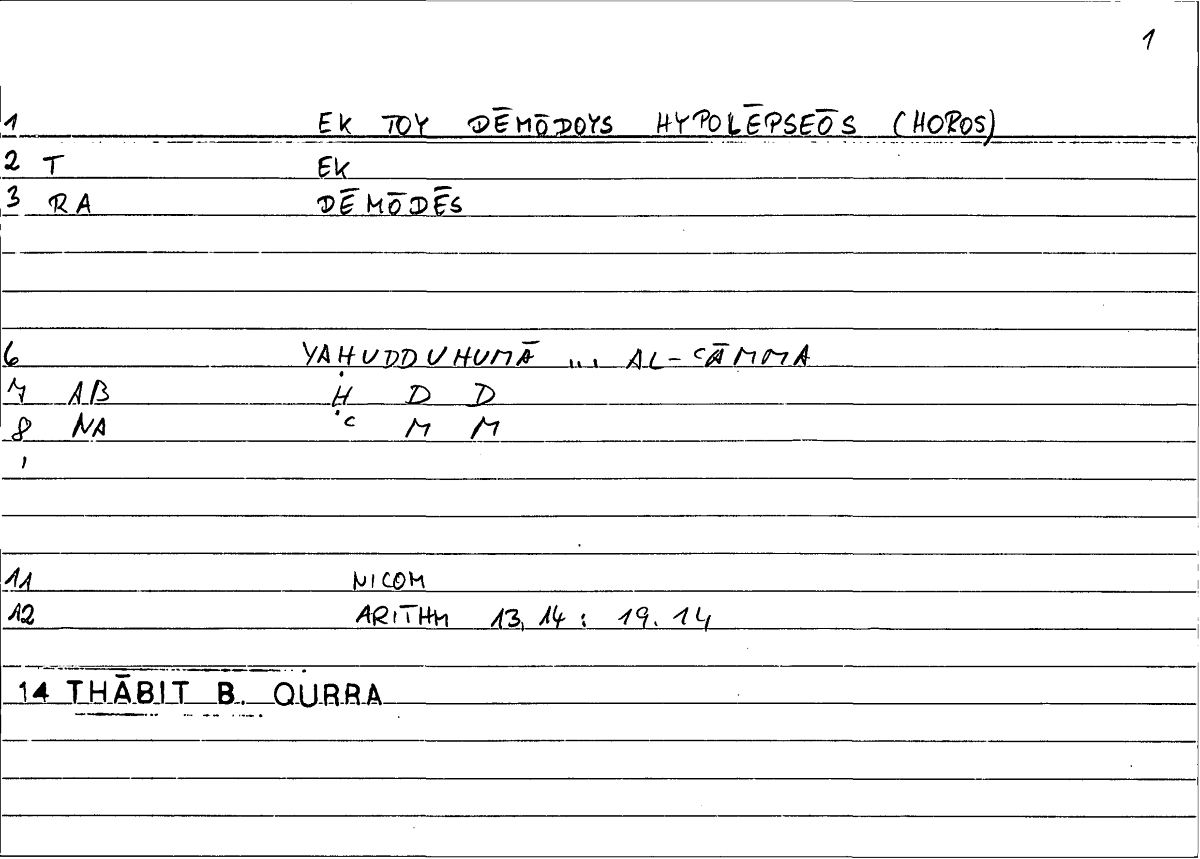 1
1 EK TOY DĒMŌDOYS HYPOLĒPSEŌS (HOROS)
2 T EK
3 RA DĒMŌDĒS
6 YAḤUDDUHUMĀ ... AL-CĀMMA
7 AB Ḥ D D
8 NA C M M
11 NICOM
12 ARITHM 13, 14 : 19. 14
14 THĀBIT B. QURRA